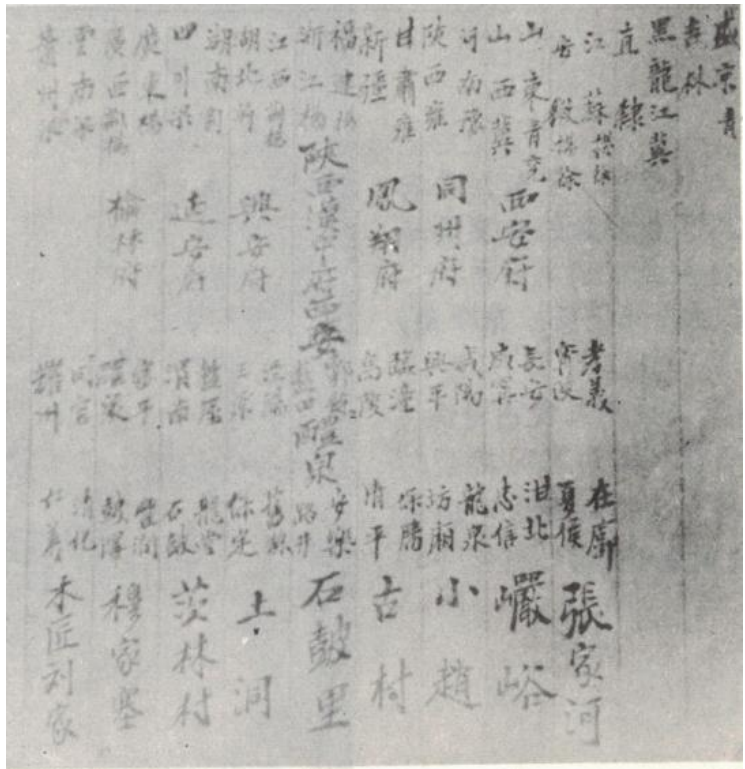 盛京青
吉林
黑龍江冀
直隸
江蘇揚徐
安徽揚徐
山東青兗
山西冀
河南豫
陝西雍
甘肅雍
新疆
福建揚
浙江揚
江西荊揚
湖北荊
湖南荊
四川梁
廣東揚
廣西荊揚
雲南梁
貴州梁
西安府
同州府
鳳翔府
陝西漢中府西安
興安府
延安府
榆林府
孝義
寧陝
長安
咸寧
咸陽
興平
臨潼
高陵
鄠縣
藍田
醴泉
三原
盩厔
渭南
富平
醴泉
同官
耀州
在廓
夏侯
泔北
志信
龍泉
坊廂
保勝
清平
安樂
路井
舊縣
保定
龍堂
石鼓
清化
仁善
張家河
巖峪
小趙
古村
石鼓里
土洞
茨林村
穆家寨
木匠刘家